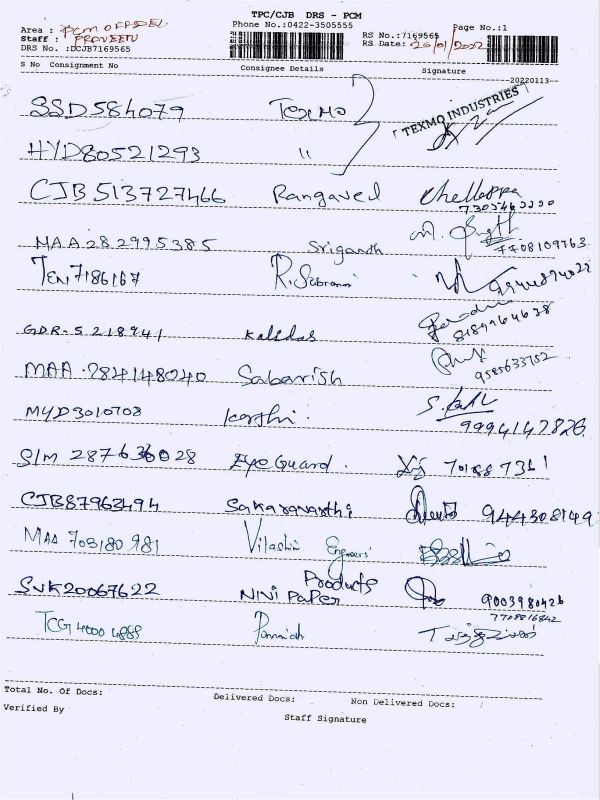 TPC/CJB DRS - PCM
Phone No.:0422-3505555 Page No.:1
Area : PCM OFFICE
Staff : PRAVEEN
RS No.:7169565
DRS No. :DCJB7169565 RS Date: 20/01/2022
S No Consignment No Consignee Details Signature
20220113
SSD584079 Texmo TEXMO INDUSTRIES
HYD80521293 "
CJB 513727466 Rangavel Chellappa
MAA 282995385 Srigandh
7708109763
TEN 7186167 R. Sabramni
GDR-5218941 Kalidas 8189964638
MAA 284148040 Sabarish 9585633752
MYD3010708 Karthi.
9994147826
SIM 287636028 Eye Guard.
CJB87963494 Sakaravarthi 944308149
MAA 703180981 Vilashini Engineers
SVK20067622 NINI PAPER Products 9003980426
7708816842
TCG 4000 4889
Total No. Of Docs: Delivered Docs: Non Delivered Docs:
Verified By Staff Signature